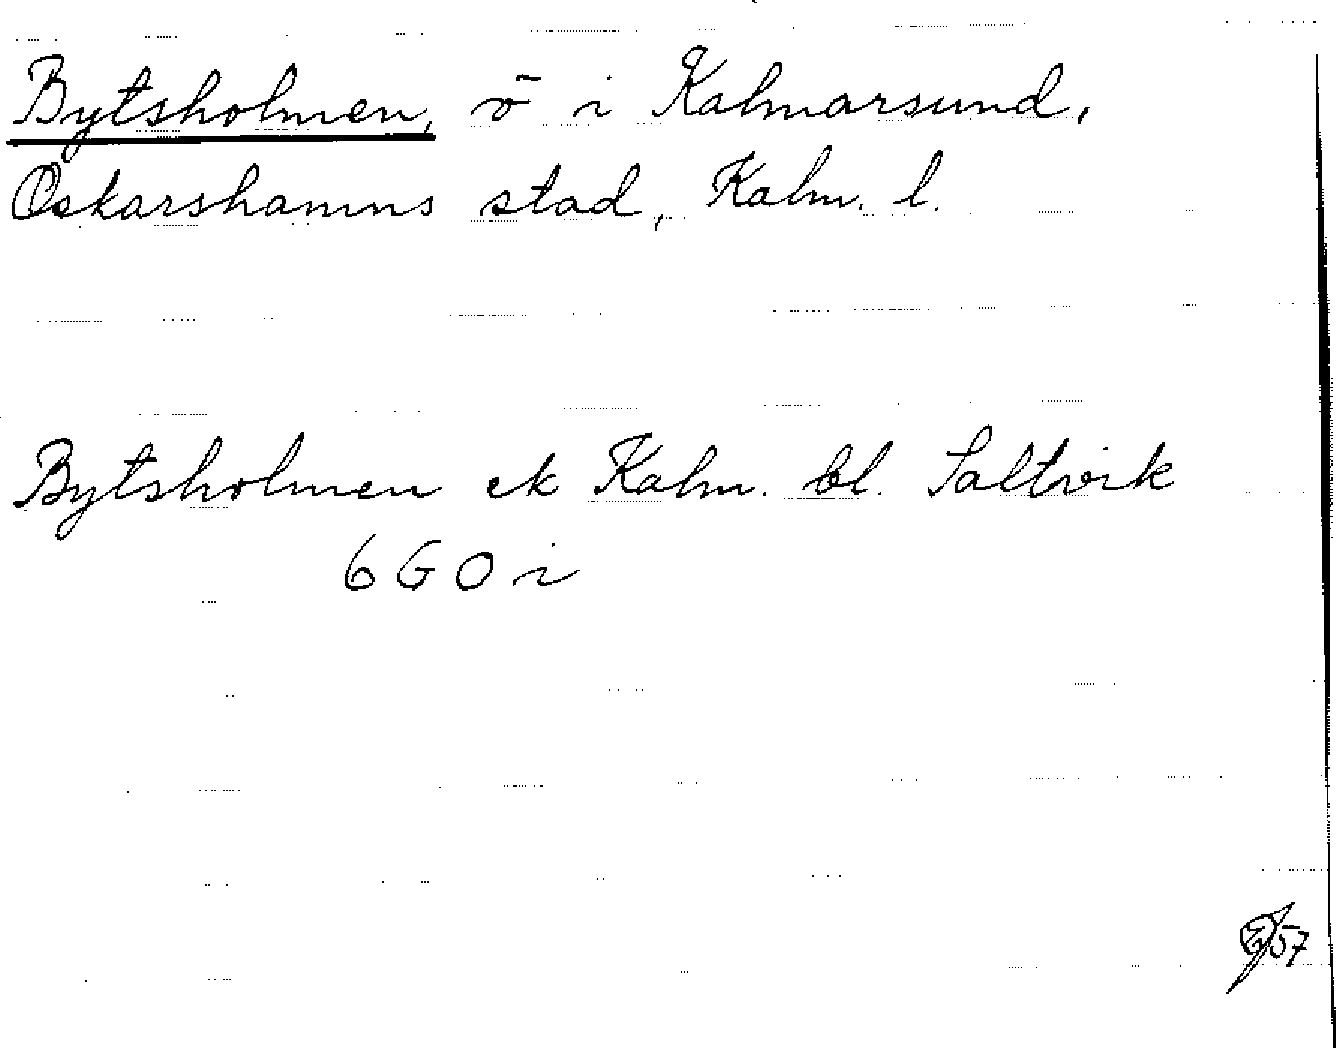 Bytsholmen, ö i Kalmarsund,
Oskarshamns stad, Kalm. l.
Bytsholmen ek Kalm. bl. Saltvik
6 G O i
57